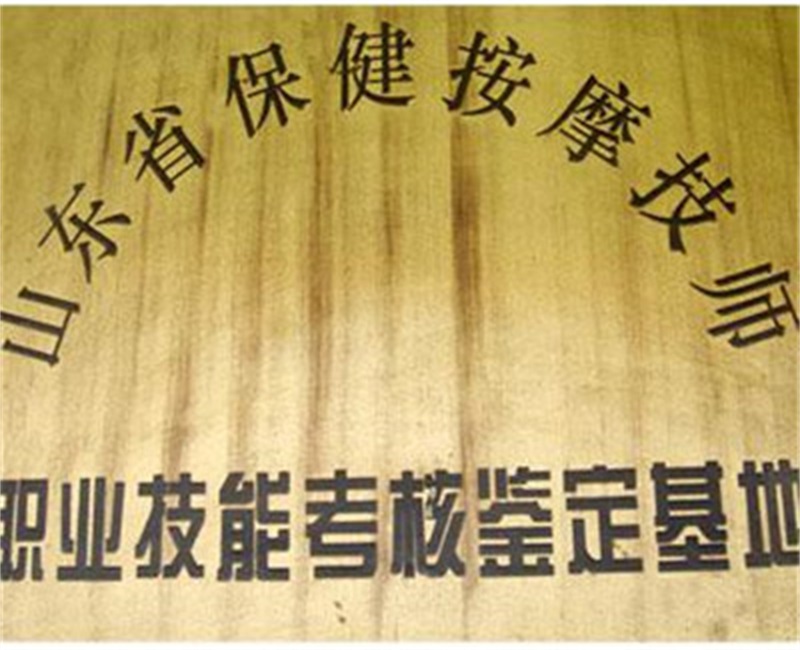 山东省保健按摩技师
职业技能考核鉴定基地